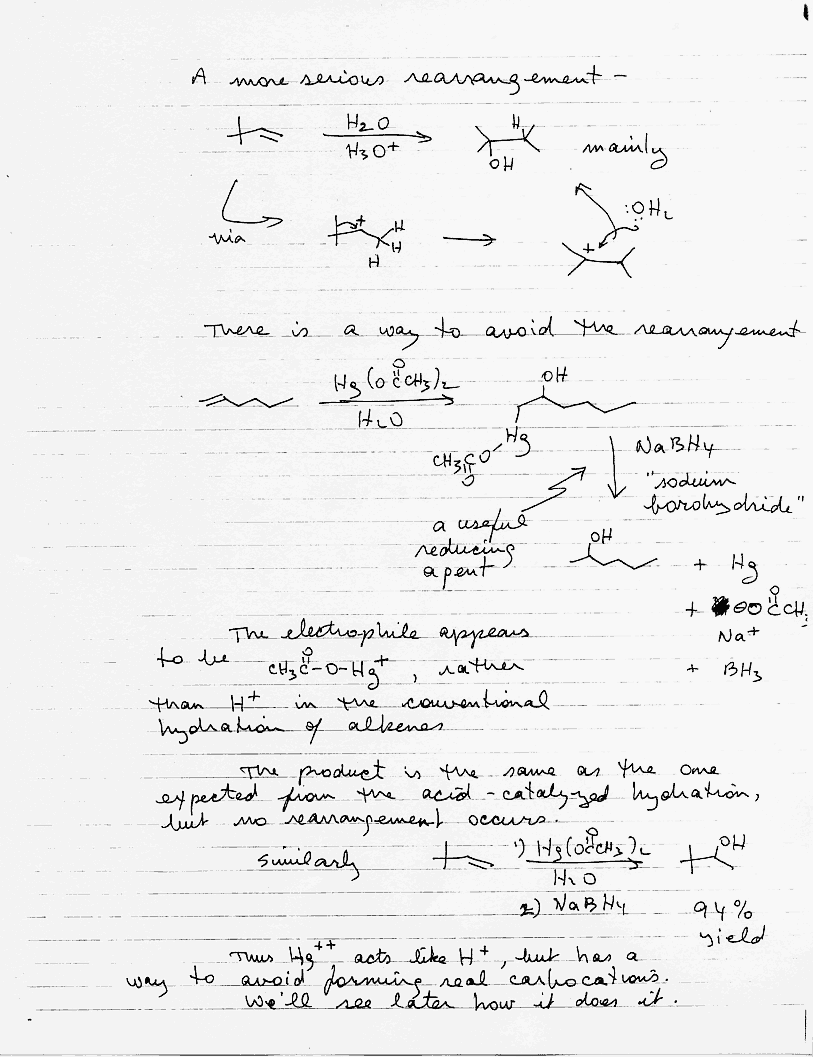 A more serious rearrangement –
H2O
H3O+
H
OH
mainly
via
+
H
H
H
:ÖH2
+
There is a way to avoid the rearrangement
Hg(OCCH3)2
O
H2O
OH
Hg
CH3CO
O
NaBH4
"sodium
borohydride"
a useful
reducing
agent
OH
+ Hg
+ ⊖OCCH3
O
Na+
+ BH3
The electrophile appears
to be CH3C–O–Hg+, rather
O
than H+ in the conventional
hydration of alkenes
The product is the same as the one
expected from the acid-catalyzed hydration,
but no rearrangement occurs.
Similarly
1) Hg(OCCH3)2
O
H2O
2) NaBH4
OH
94%
yield
Thus Hg++ acts like H+, but has a
way to avoid forming real carbocations.
We'll see later how it does it.